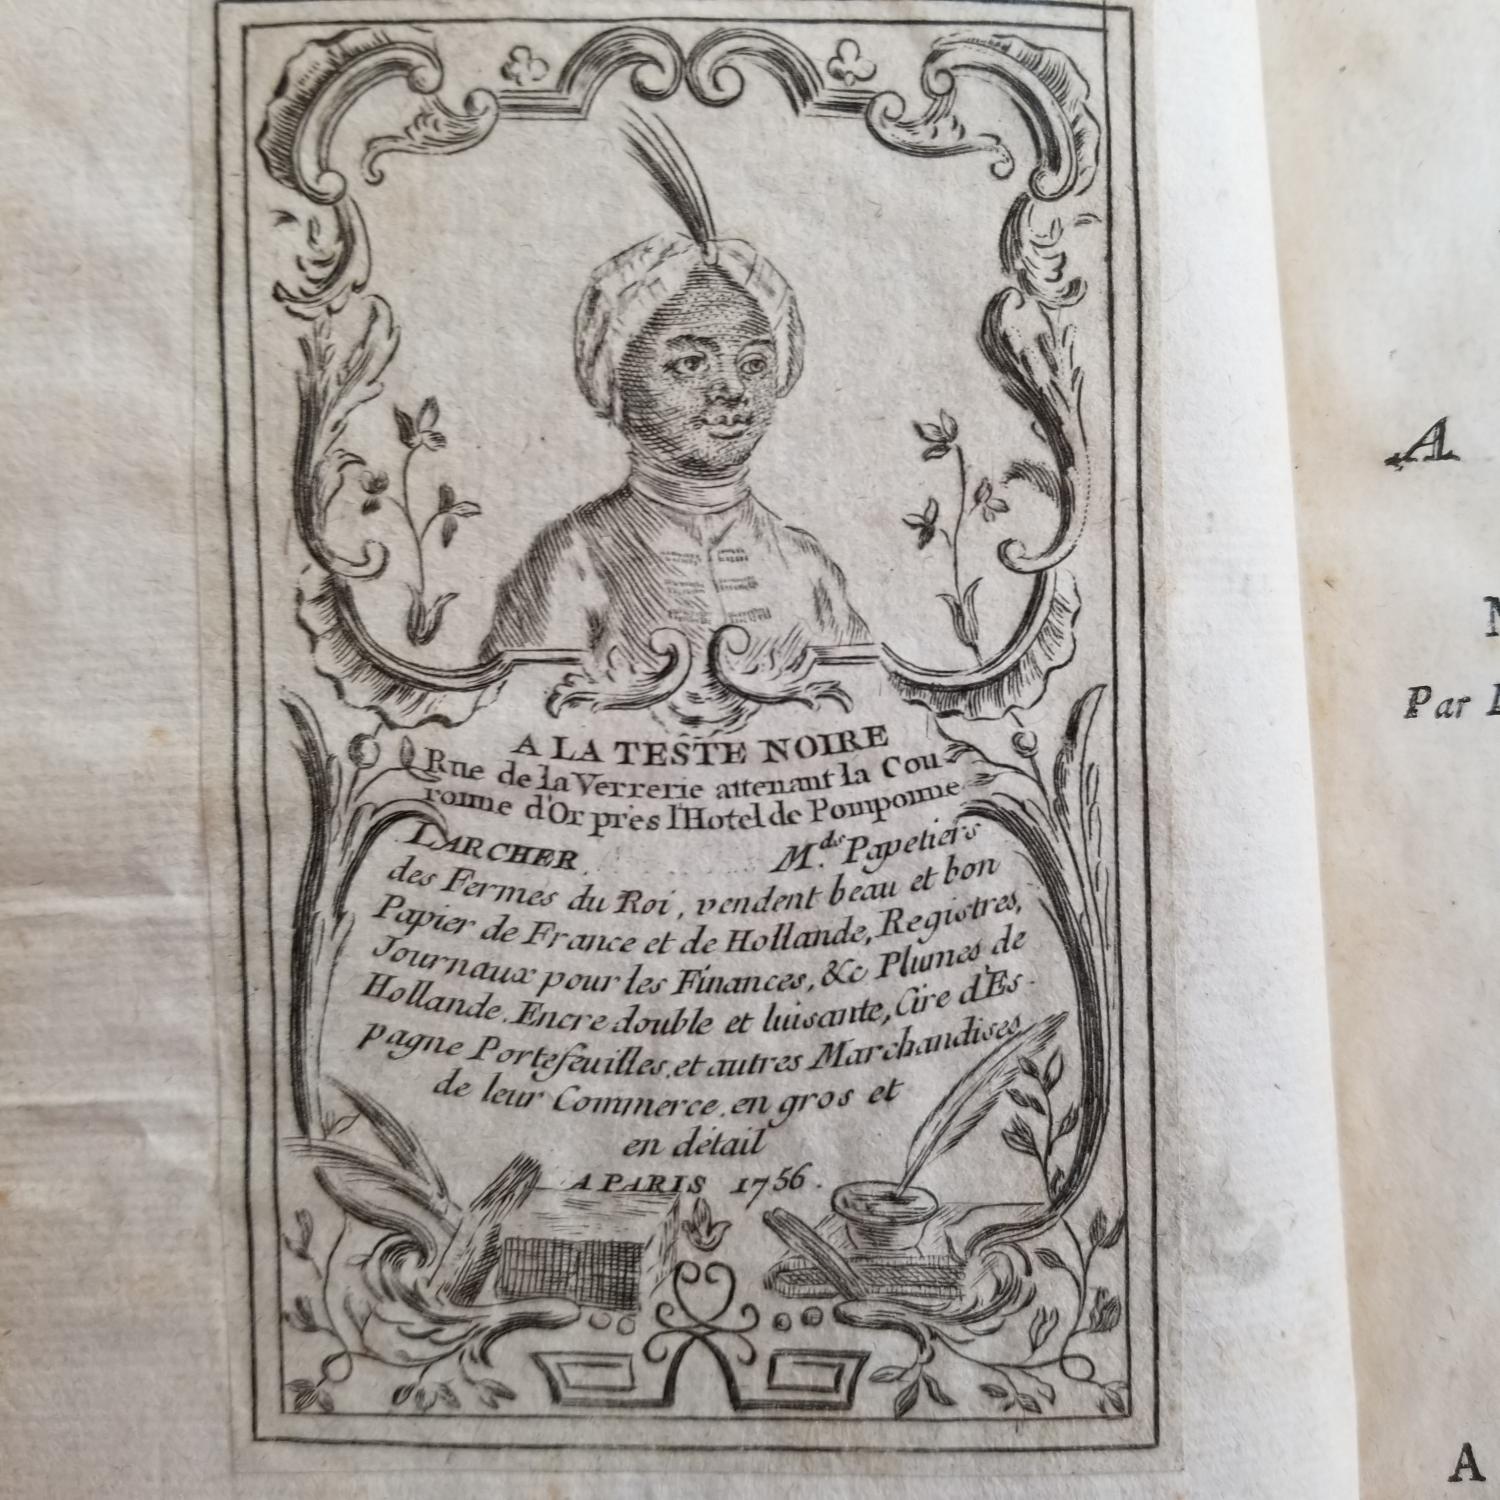 A LA TESTE NOIRE
Rue de la Verrerie attenant la Cou-
ronne d'Or près l'Hotel de Pomponne
LARCHER M.ds Papetiers
des Fermes du Roi, vendent beau et bon
Papier de France et de Hollande, Registres,
Journaux pour les Finances, &c Plumes de
Hollande. Encre double et luisante, Cire d'Es-
pagne Portefeuilles, et autres Marchandises
de leur Commerce, en gros et
en détail
A PARIS 1756.
A
N
Par
A